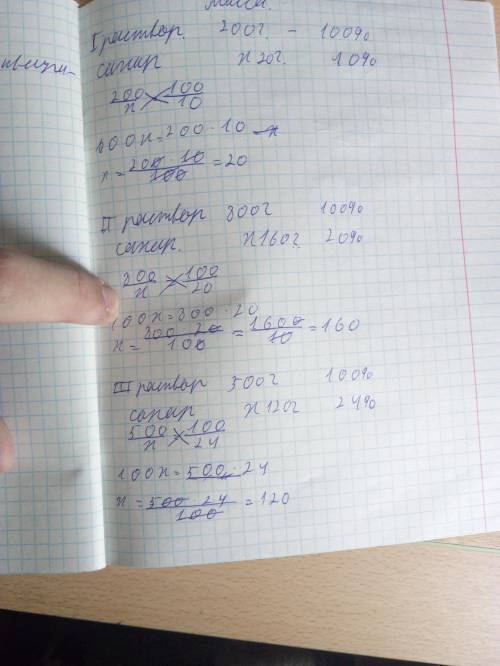 Масса.
I раствор. 200г. - 100%
сахар х 20г. 10%
200/х 100/10
100х=200·10
х= 200·10/100 =20
II раствор 800г 100%
сахар. х160г 20%
800/х 100/20
100х=800·20
х= 800·20/100 = 1600/10 =160
III раствор 500г 100%
сахар х120г 24%
500/х 100/24
100х=500·24
х= 500·24/100 =120